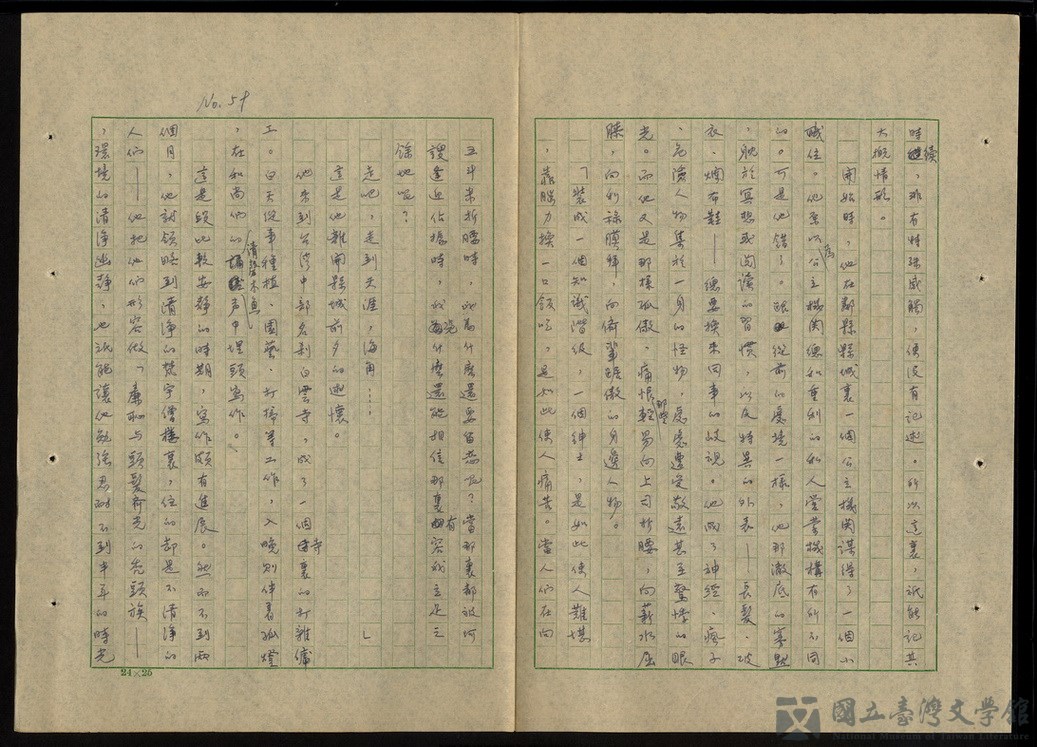 時繼續，非有特殊感觸，便沒有記述。所以這裏，祇能記其
大概情形。
開始時，他在鄰縣縣城裏一個公立機關謀得了一個小
職位。他原以為公立機關總和重利的私人營業機構有所不同
的。可是他錯了。跟從前的處境一樣，他那澈底的寡默
，耽於冥想或閱讀的習慣，以及特異的外表——長髮、破
衣、爛布鞋——總要換來同事的歧視。他成了神經、瘋子
、危險人物集於一身的怪物，處處遭受敬遠甚至驚悸的眼
光。而他又是那樣孤傲，痛恨那些輕易向上司折腰，向薪水屈
膝，向利祿膜拜，向儕輩踞傲的身邊人物。
「裝成一個知識階級，一個紳士，是如此使人難堪
，靠腦力換一口飯吃，是如此使人痛苦。當人們在向
No. 59
五斗米折腰時，我為什麼還要留戀呢？當那裏都被河
謏達迅佔據時，我為什麼還能相信那裏有容我立足之
餘地呢？
走吧，走到天涯，海角……」
這是他離開縣城前夕的述懷。
他來到台灣中部名剎白雲寺，成了一個寺裏的打雜傭
工。白天從事種植、園藝、打掃等工作，入晚則伴着孤燈
，在和尚們的清磬木魚聲中埋頭寫作。
這是段比較安靜的時期，寫作頗有進展。然而不到兩
個月，他就領略到清淨的梵宇僧樓裏，住的却是不清淨的
人們——他把他們形容做「廉恥與頭髮齊光的禿頭族——
，環境的清淨幽靜，也祇能讓他勉強忍耐不到半年的時光
24×25
國立臺灣文學館
National Museum of Taiwan Literature